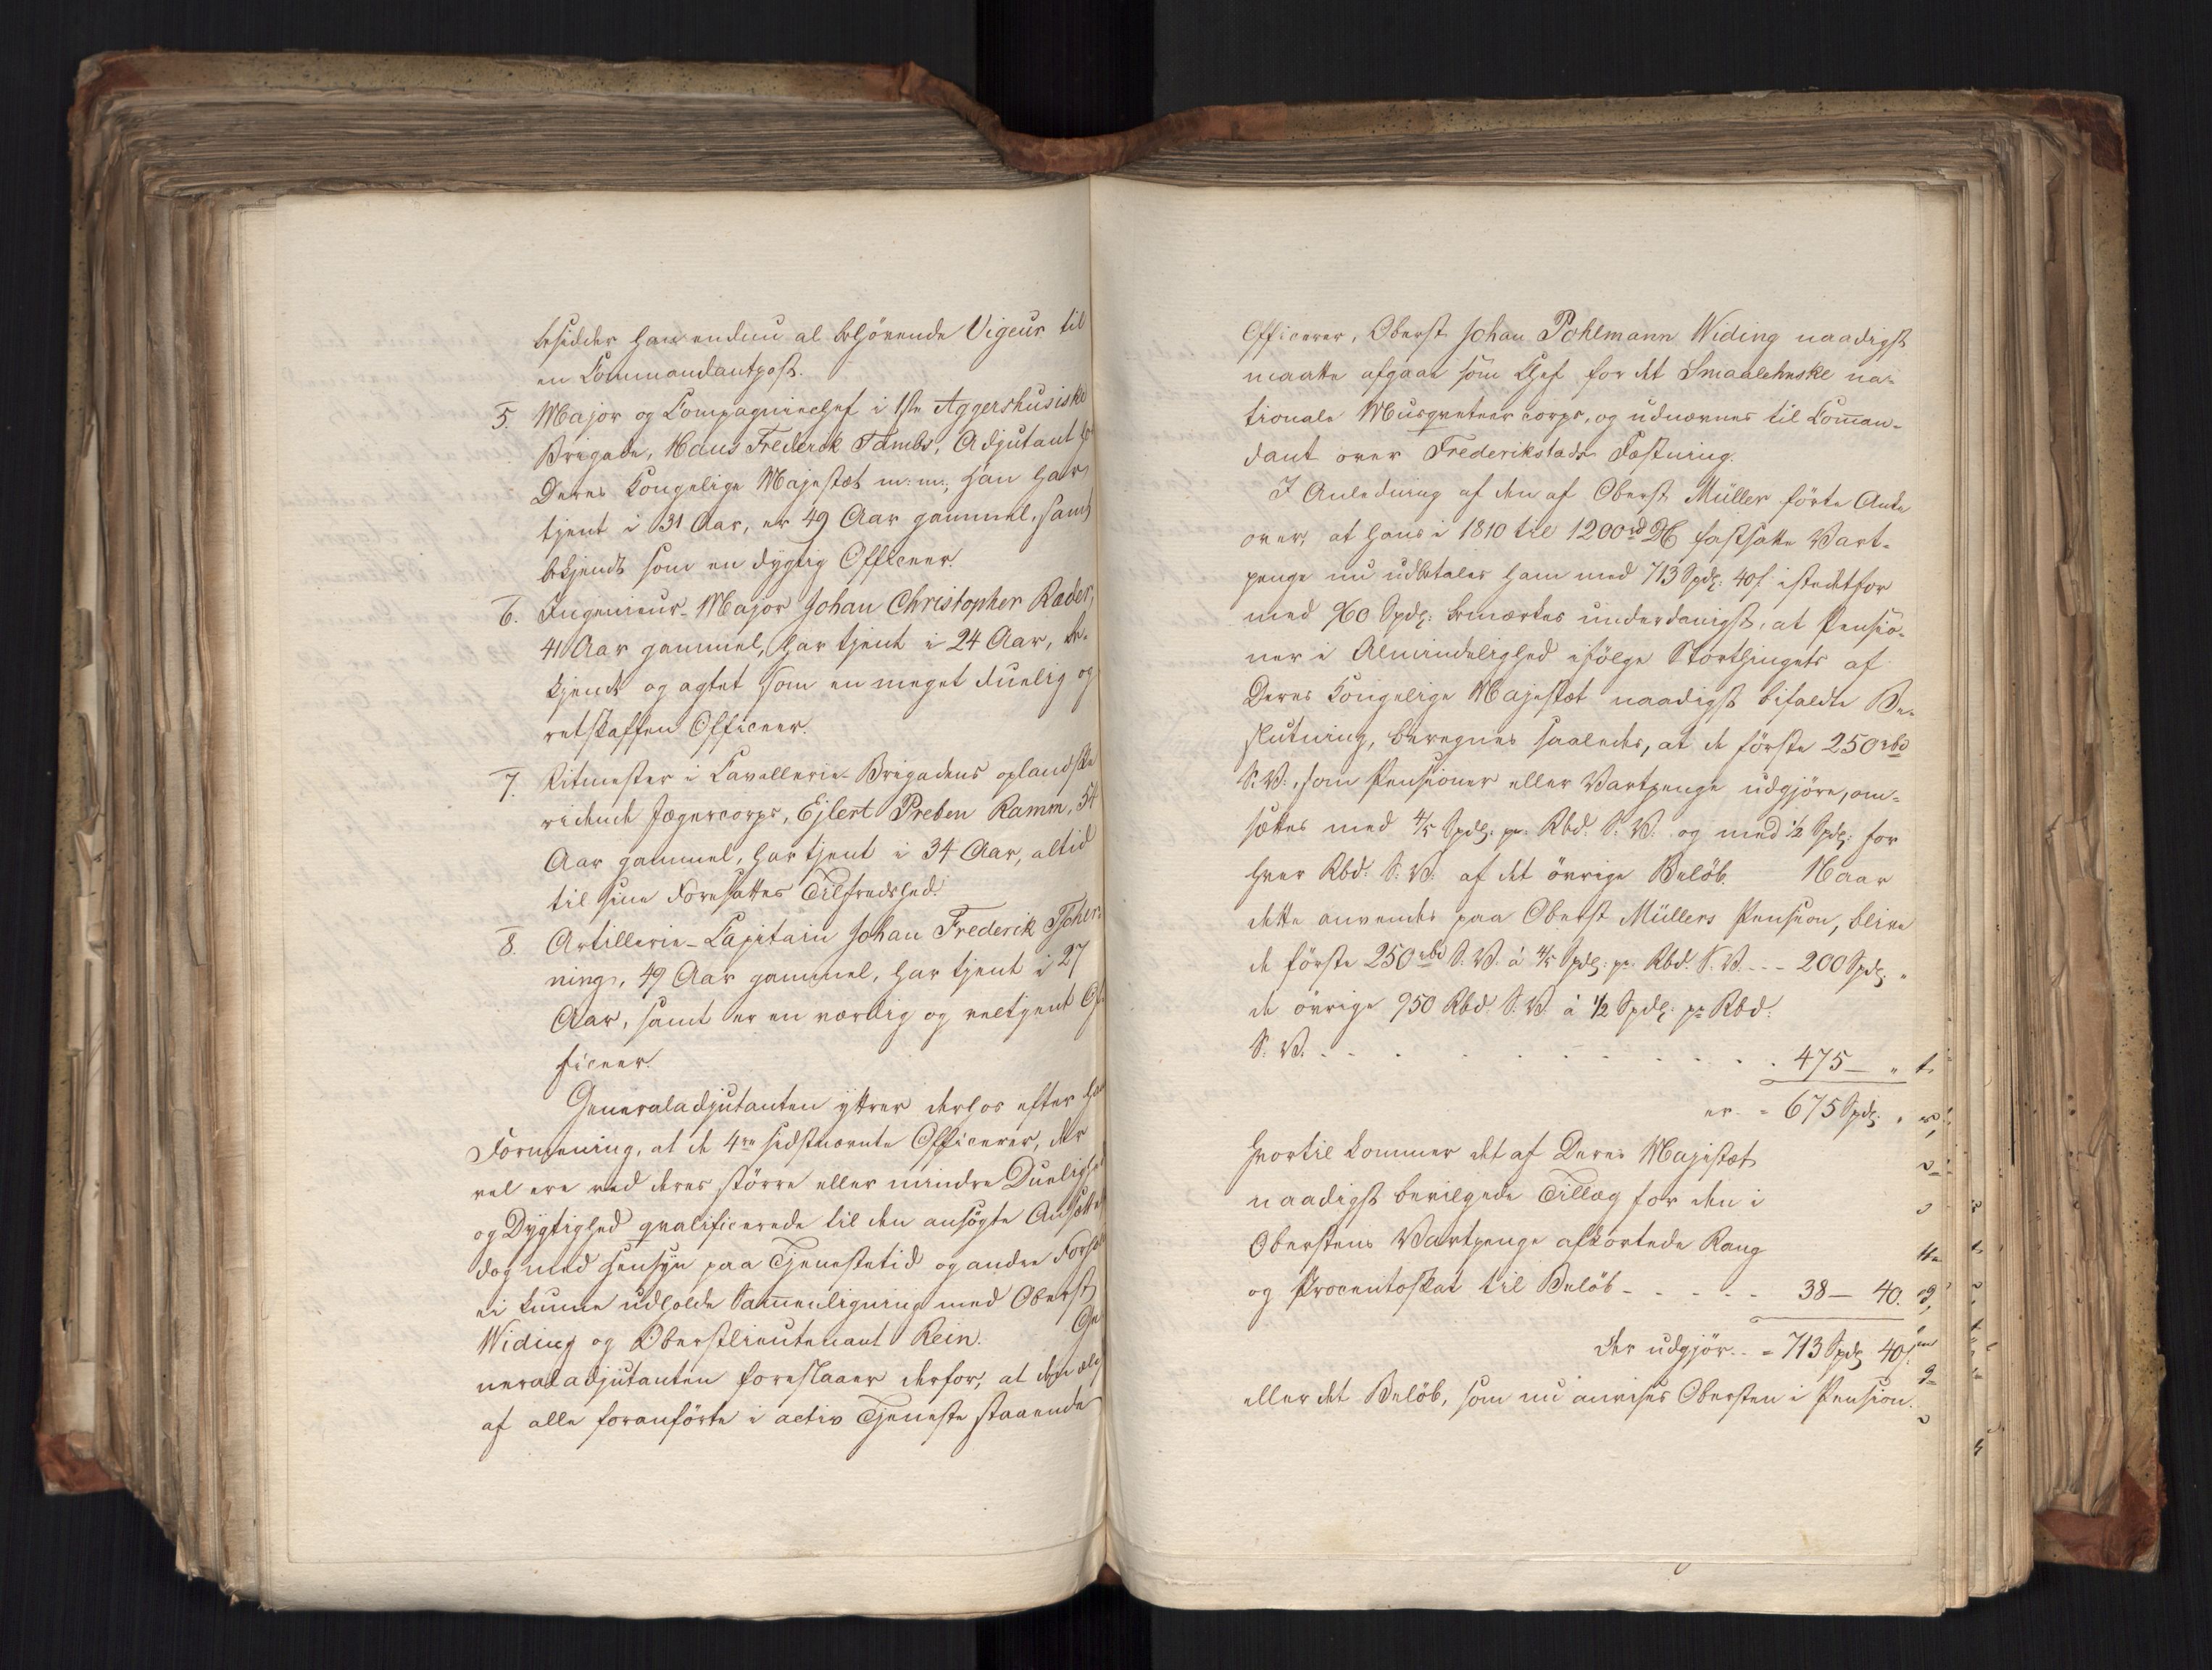 besidder han endnu al behörende Vigeur til
en Commandantpost.
5. Major og Compagniechef i 1ste Aggershusiske
Brigade, Hans Frederik Tambs, Adjutant hos
Deres Kongelige Majestæt m: m:, han har
tjent i 31 Aar, er 49 Aar gammel, samt
bekjendt som en dygtig Officeer.
6. Ingenieur-Major Johan Christopher Ræder,
41 Aar gammel, har tjent i 24 Aar, be-
kjendt og agtet som en meget duelig og
retskaffen Officeer.
7. Ritmester i Cavallerie-Brigadens oplandske
ridende Jægercorps, Ejlert Preben Ramm, 54
Aar gammel, har tjent i 34 Aar, altid
til sine Foresattes Tilfredshed.
8. Artillerie-Capitain Johan Frederik Tscher-
ning, 49 Aar gammel, har tjent i 27
Aar, samt er en værdig og veltjent Of-
ficeer.
Generaladjutanten yttrer derhos efter
Formening, at de 4re sidstnævnte Officerer, der
vel ere ved deres större eller mindre Duelighed
og Dygtighed qvalificerede til den ansögte Ansættelse
dog med Hensyn paa Tjenestetid og andre
ei kunne udholde Sammenligning med Oberst
Widing og Oberstlieutenant Rein. Ge-
neraladjutanten foreslaaer derfor, at den
af alle foranförte i activ Tjeneste staaende
Officerer, Oberst Johan Pohlmann Widing naadigst
maatte afgaae som Chef for det Smaalehnske na-
tionale Musqveteer corps, og udnævnes til Comman-
dant over Frederikstads Fæstning.
I Anledning af den af Oberst Müller förte Anke
over, at hans i 1810 til 1200 rd fastsatte Vart-
penge nu udbetales ham med 713 Spdlr: 40 s. istedetfor
med 960 Spdlr: bemærkes underdanigst, at Pensio-
ner i Almindelighed ifölge Storthingets af
Deres Kongelige Majestæt naadigst bifaldte Be-
slutning, beregnes saaledes, at de förste 250 rbd
S: V:, som Pensioner eller Vartpenge udgjöre, om-
sættes med 4/5 Spdlr: pr. Rbd: S: V: og med 1/2 Spdlr: for
hver Rbd: S: V: af det övrige Belöb. Naar
dette anvendes paa Oberst Müllers Pension, blive
de förste 250 rbd S: V: á 4/5 Spdlr: pr. Rbd: S: V: - - - 200 Spdlr. "
de övrige 950 Rbd: S: V: á 1/2 Spdlr: pr Rbd:
S: V: - - - - - - - - - 475 — "
er - = 675 Spdlr: "
hvortil kommer det af Deres Majestæt
naadigst bevilgede Tillæg for den i
Oberstens Vartpenge afkortede Rang
og Procentoskat til Belöb - - - - - 38 — 40.
der udgjör - - = 713 Spdlr 40 s.
eller det Belöb, som nu anvises Obersten i Pension.